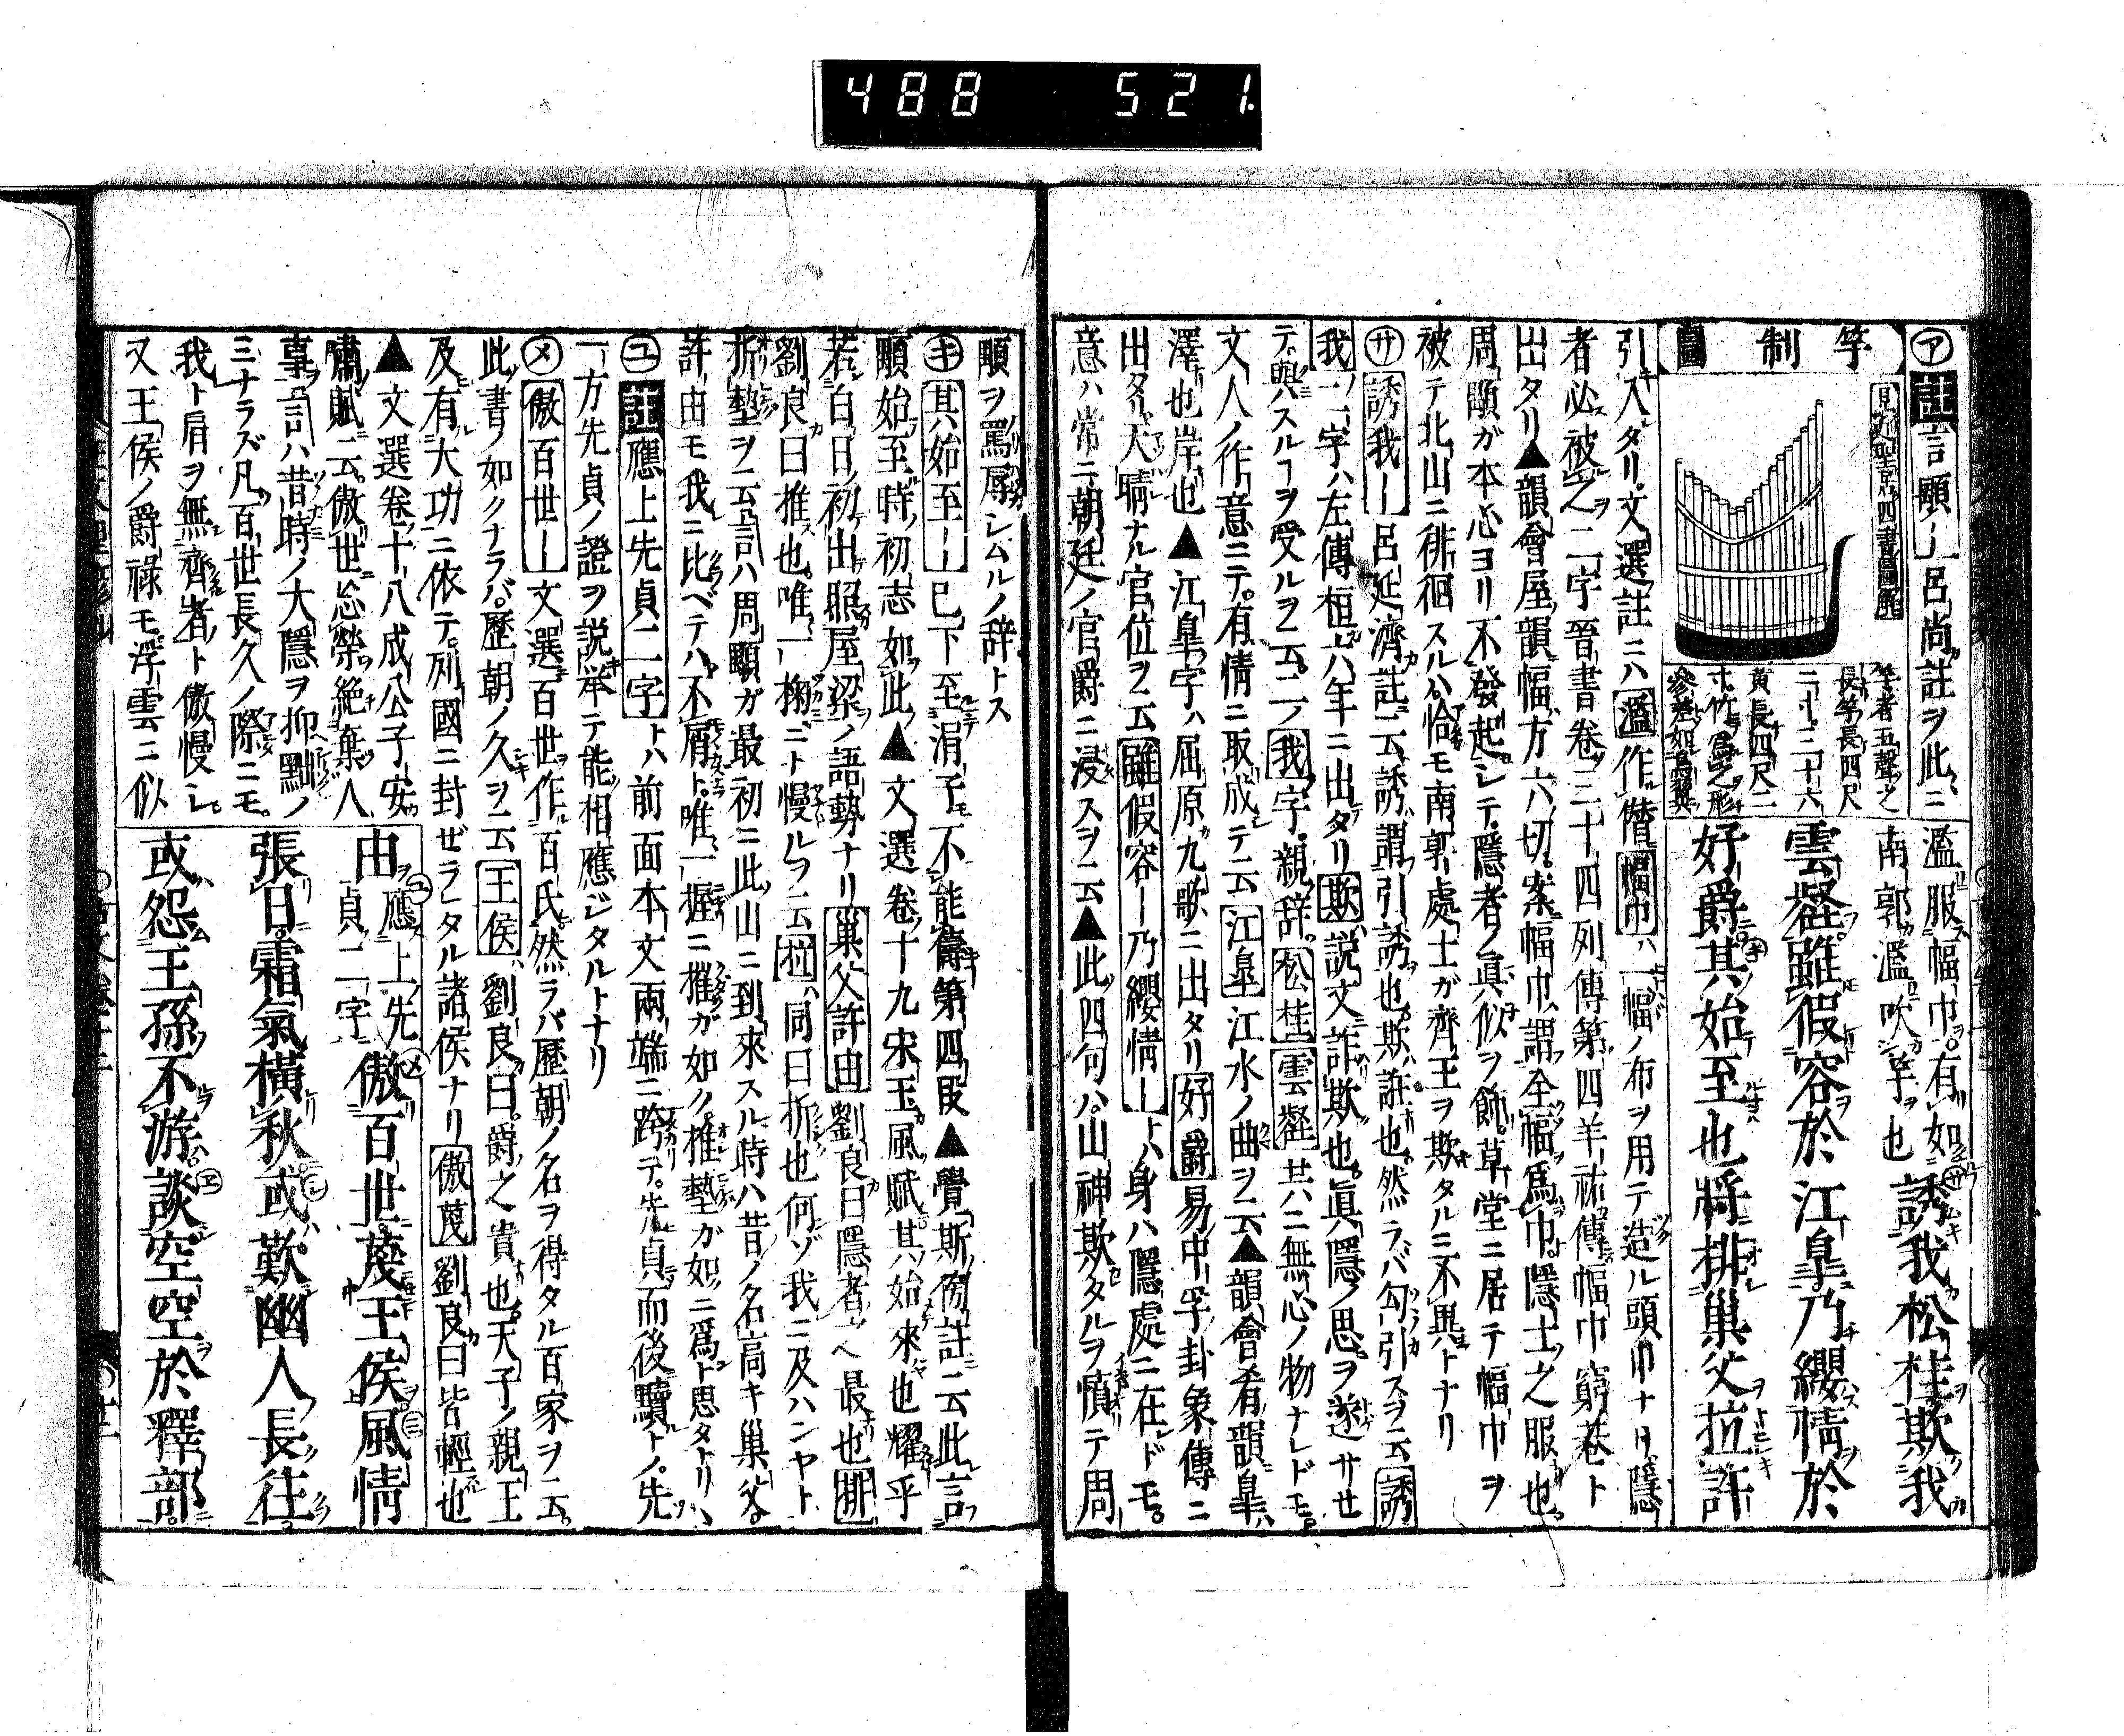 488 521.
㋐註言顒ノ一呂尚註ヲ此ニ
竽制圖
竽者五聲之
長竽長四尺
二寸三十六
黃長四尺二
寸竹爲之形
參差如鳥翼
濫服幅巾有如
南郭濫吹竽也
誘我松桂欺我
雲壑雖假容於江皐乃纓情於
好爵其始至也將排巢父拉許
引入タリ文選註ニハ濫作僭幅巾ハ一幅ノ布ヲ用テ造ル頭巾ナリ隱
者必被之二字晉書卷三十四列傳第四羊祐傳幅巾窮巷ト
出タリ▲韻會屋韻幅方六切案幅巾謂全幅爲巾隱士之服也
周顒ガ本心ヨリ不發起シテ隱者ノ眞似ヲ飾草堂ニ居テ幅巾ヲ
被テ北山ニ徘徊スルハ恰モ南郭處士ガ齊王ヲ欺タルニ不異トナリ
㋚誘我一呂延濟註云誘謂引誘也欺誑也然ラバ勾引スヲ云誘
我ノ一字ハ左傳桓六年ニ出タリ欺說文詐欺也眞隱ノ思ヲ遂サセ
テ與ハスルヿヲ受ルヲ云二ノ我字親辞松桂雲壑共ニ無心ノ物ナレドモ
文人ノ作意ニテ有情ニ取成テ云江皐江水ノ曲ヲ云▲韻會肴韻皐
澤也岸也▲江皐字ハ屈原九歌ニ出タリ好爵易中孚卦象傳ニ
出タリ天晴ナル官位ヲ云雖假容一乃纓情一トハ身ハ隱處ニ在ドモ
意ハ常ニ朝廷ノ官爵ニ浸スヲ云▲此四句ハ山神欺タルヲ憤テ周
顒ヲ罵辱シムルノ辞トス
㋖其始至一已下至涓子不能儔第四段▲覺斯倒註云此言
顒始至時初志如此▲文選卷十九宋玉風賦其始來也耀乎
若白日初出照屋梁ノ語勢ナリ巢父許由劉良曰隱者ノ最也排
劉良曰推也唯一掬ニト慢ルヲ云拉同曰折也何ゾ我ニ及ハンヤト
折墊ヲ云言ハ周顒ガ最初ニ此山ニ到來スル時ハ昔ノ名高キ巢父
許由モ我ニ比ベテハ不屑ト唯一握ニ摧ガ如ク推墊ガ如ニ爲ト思タトリ
㋴註應上先貞二字トハ前面本文兩端ニ跨テ先貞而後黷トノ先
一方先貞ノ證ヲ說举テ能相應ジタルトナリ
㋱傲百世一文選百世作百氏然ラバ歷朝ノ名ヲ得タル百家ヲ云
此書ノ如クナラバ歷朝ノ久ヲ云王侯劉良曰爵之貴也天子ノ親王
及有大功ニ依テ列國ニ封ゼラレタル諸侯ナリ傲蔑劉良曰皆輕也
▲文選卷十八成公子安
嘯賦云傲世忘榮絶棄人
事言ハ昔時ノ大隱ヲ抑黜ノ
ミナラズ凡百世長久ノ際ニモ
我ト肩ヲ無齊者ト傲慢シ
又王侯ノ爵祿モ浮雲ニ似
由應上先
貞二字
傲百世蔑王侯風情
張日霜氣橫秋或歎幽人長往
或怨王孫不游談空空於釋部